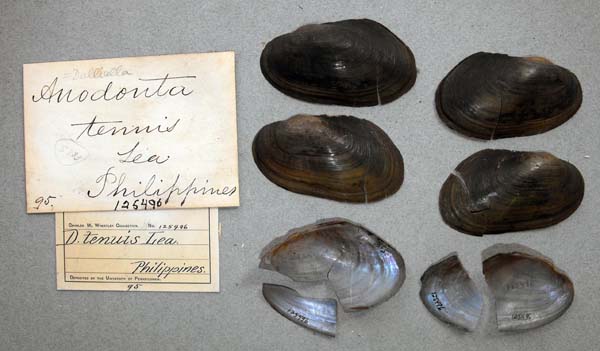 = Dalliella
Anodonta
tenuis
Lea
Philippines
95.
125496
CHARLES M. WHEATLEY COLLECTION. No. 125496
D. tenuis Lea.
Philippines.
DEPOSITED BY THE UNIVERSITY OF PENNSYLVANIA.
95